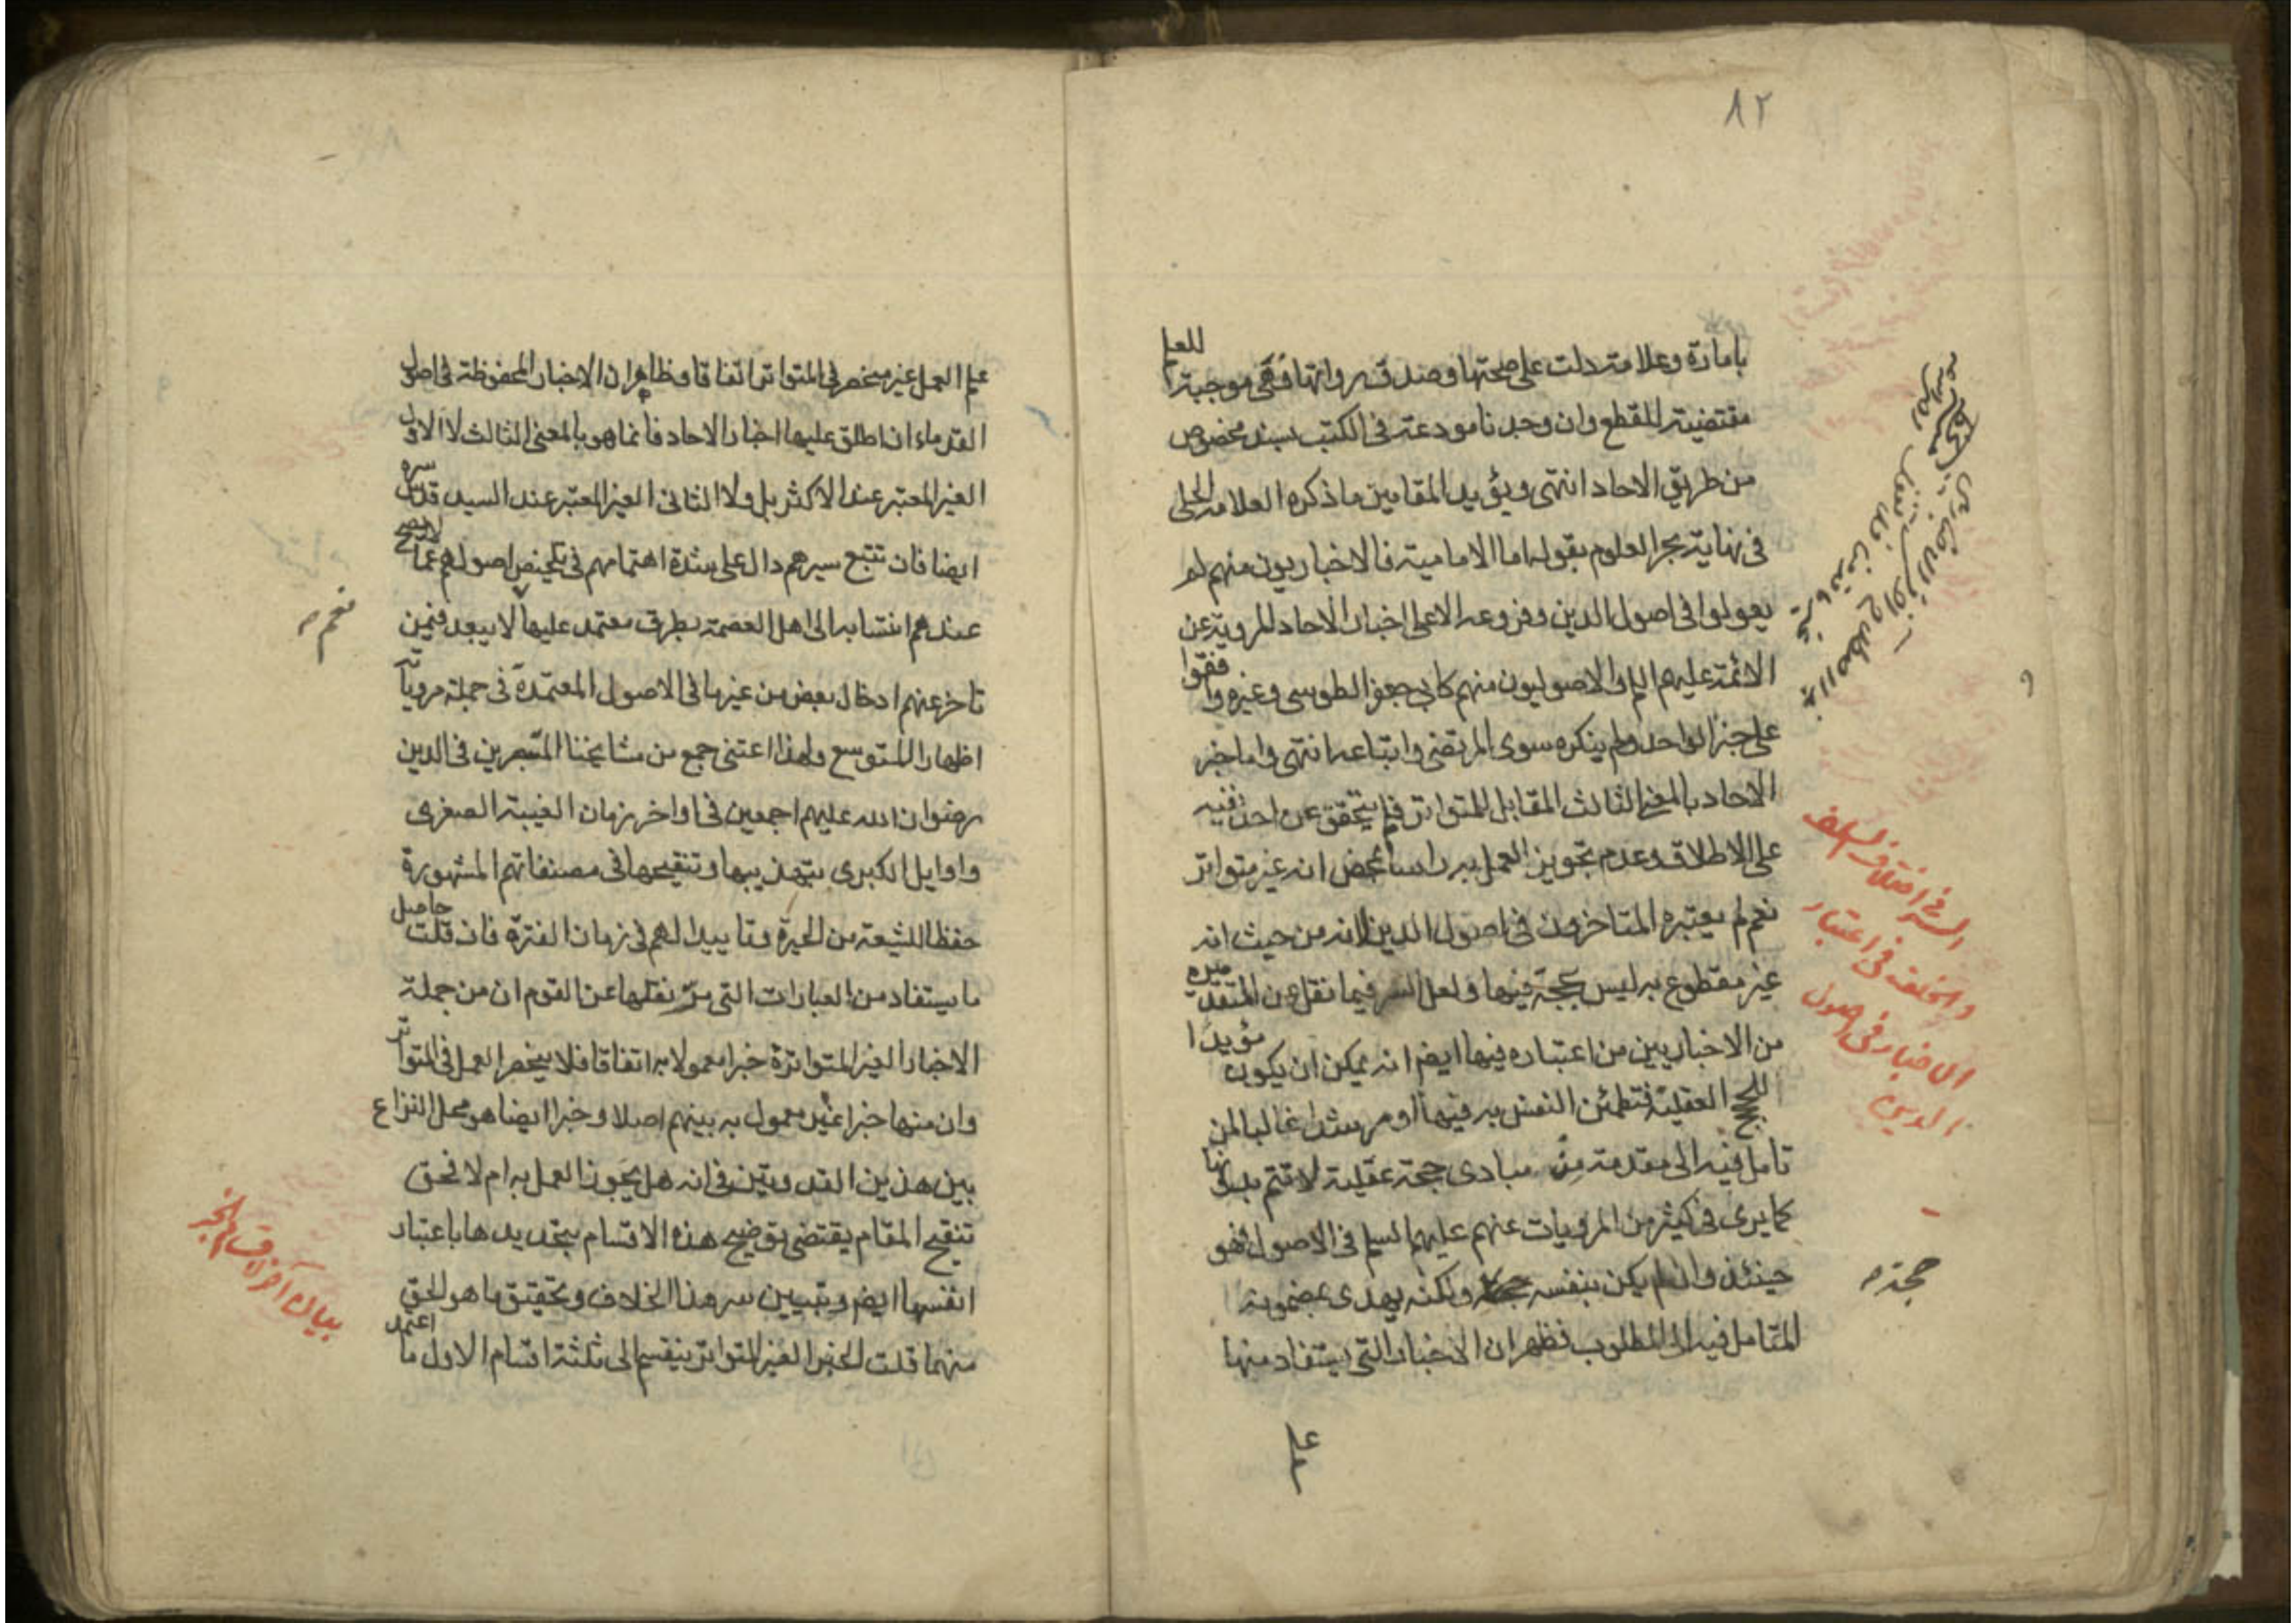 ٨٢
بامارة وعلامة دلت على صحتها وصدق رواتها فهى موجبة للعلم
مقتضية للقطع وان وجدناها مودعة فى الكتب بسند مخصوص
من طريق الاحاد انتهى ويؤيد المقامين ما ذكره العلامة الحلى
فى نهاية بحر العلوم بقوله اما الامامية فالاخباريون منهم لم
يعولوا فى اصول الدين وفروعه الا على اخبار الاحاد المروية عن
الائمة عليهم السلم والاصوليون منهم كابى جعفر الطوسى وغيره وافقوا
على خبر الواحد ولم ينكره سوى المرتضى واتباعه انتهى واما خبر
الاحاد بالمعنى الثالث المقابل للمتواتر فلم يتحقق عن احد نفيه
على الاطلاق وعدم تجويز العمل به راسا بمحض انه غير متواتر
نعم لم يعتبره المتاخرون فى اصول الدين لانه من حيث انه
غير مقطوع به ليس بحجة فيها ولعل السر فيما نقل عن المتقدمين
من الاخباريين من اعتباره فيها ايضا انه يمكن ان يكون مؤيدا
للحجج العقلية فتطمئن النفس به فيها او مرشدا غالبا لمن
تامل فيه الى مقدمة من مبادى حجة عقلية لا تتم بدونها
كما يرى فى كثير من المرويات عنهم عليهم السلم فى الاصول فهو
حينئذ وان لم يكن بنفسه ولكنه يهدى بمضمونه
المتامل فيه الى المطلوب فظهر ان الاخبار التى يستفاد منها
السر فى اختلاف السلف
والخلف فى اعتبار
الاخبار فى اصول
الدين
حجة
علم
علم العمل غير منحصر فى المتواتر اتفاقا وظاهر ان الاخبار المحفوظة فى اصول
القدماء ان اطلق عليها اخبار الاحاد فانما هو بالمعنى الثالث لا الاول
الغير المعتبر عند الاكثر بل ولا الثانى الغير المعتبر عند السيد قدس سره
ايضا فان تتبع سيرهم دال على شدة اهتمامهم فى تلخيص اصولهم عما لا يصح
عندهم انتسابه الى اهل العصمة بطرق معتمد عليها لا يبعد فيمن
تاخر عنهم ادخال بعض من غيرها فى الاصول المعتمدة فى جملة مروياته
اظهارا للتوسع ولهذا اعتنى جمع من مشايخنا المتبحرين فى الدين
رضوان الله عليهم اجمعين فى اواخر زمان الغيبة الصغرى
واوايل الكبرى بتهذيبها وتنقيحها فى مصنفاتهم المشهورة
حفظا للشيعة من الحيرة وتاييدا لهم فى زمان الفترة فان قلت حاصل
ما يستفاد من العبارات التى مر نقلها عن القوم ان من جملة
الاخبار الغير المتواترة خبرا معمولا به اتفاقا فلا ينحصر العمل فى المتواتر
وان منها خبرا غير معمول به بينهم اصلا وخبرا ايضا هو محل النزاع
بين هذين القدوتين فى انه هل يجوز العمل به ام لا فحق
تنقيح المقام يقتضى توضيح هذه الاقسام بتحديدها باعتبار
انفسها ايضا وتبيين سر هذا الخلاف وتحقيق ما هو الحق
منهما قلت الخبر الغير المتواتر ينقسم الى ثلثة اقسام الاول ما اعتمد
نعم
بيان اخر اقسام الخبر